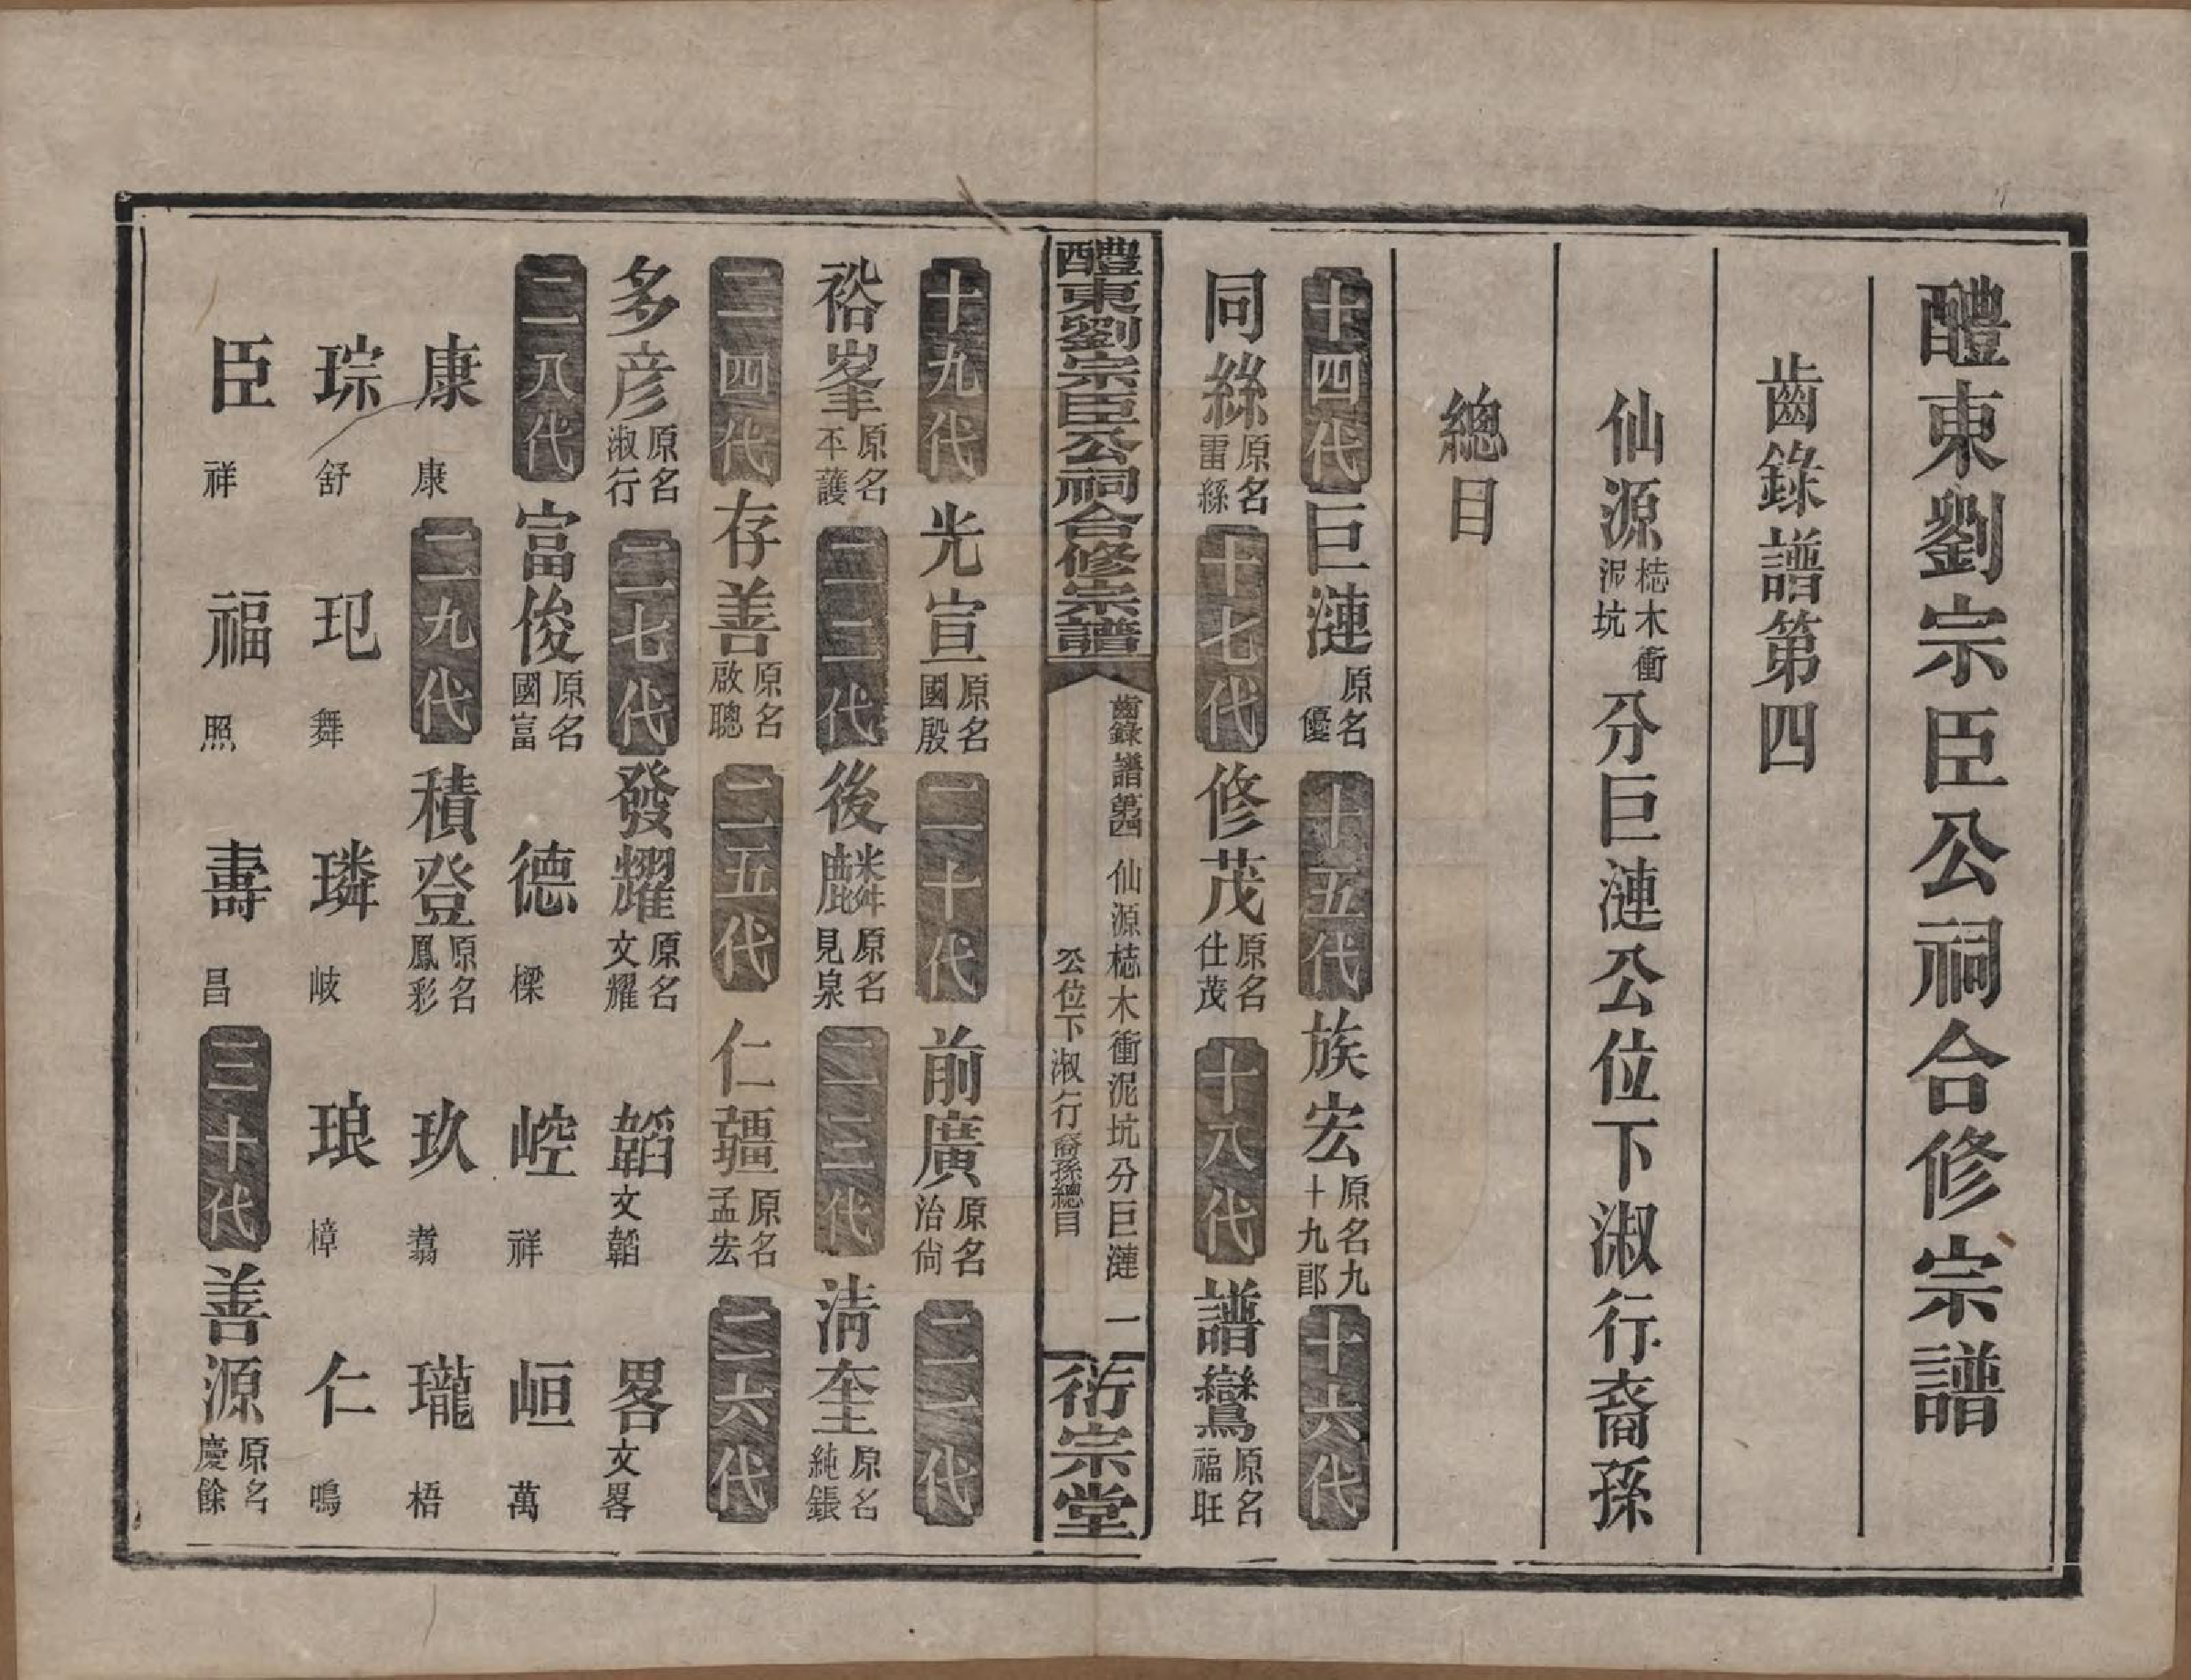 醴東劉宗臣公祠合修宗譜
齒錄譜第四
仙源梽木衝泥坑分巨漣公位下淑行裔孫
總目
十四代巨漣原名優十五代族宏原名九十九郎十六代
同絲原名雷絲十七代修茂原名仕茂十八代譜鸞原名福旺
醴東劉宗臣公祠合修宗譜
齒錄譜第四 仙源梽木衝泥坑分巨漣
公位下淑行裔孫總目
一
衍宗堂
十九代光宣原名國殷二十代前廣原名治尙二一代
裕峯原名丕護二二代後麟原名見泉二三代淸奎原名純錶
二四代存善原名啟聰二五代仁疆原名孟宏二六代
多彥原名淑行二七代發耀原名文耀韜文韜畧文畧
二八代富俊原名國富德樑崆祥峘萬
康康二九代積登原名鳳彩玖翥瓏梧
琮舒玘舞璘岐琅樟仁鳴
臣祥福照壽昌三十代善源原名慶餘